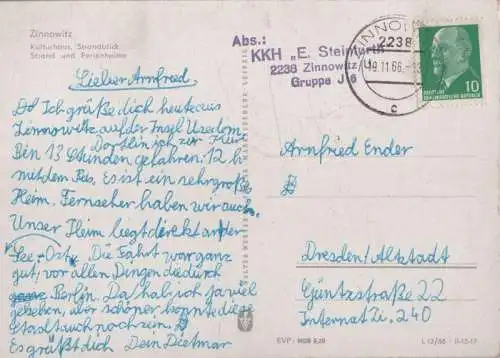 Zinnowitz
Kulturhaus, Strandblick
Strand und Ferienheime
Lieber Arnfried.
Ich grüße dich heute aus
Zinnowitz, auf der Insel Usedom.
Bin 13 Stunden gefahren; 12 h
mit dem Es ist ein sehr großes
Heim. Fernseher haben wir auch.
Unser Heim liegt direkt an der
See - Ost. Die Fahrt war ganz
gut, vor allen Dingen die durch
Berlin. Da hab ich ja viel
gesehen, aber schöner konnte die
Stadt auch noch sein.
Es grüßt dich Dein Dietmar
Abs.:
KKH „E. Steinfurth"
2238 Zinnowitz
Gruppe J 6
2238
19.11.66
c
10
Arnfried Ender
Dresden/Altstadt
Güntzstraße 22
Internat Zi. 240
EVP
L 12/66